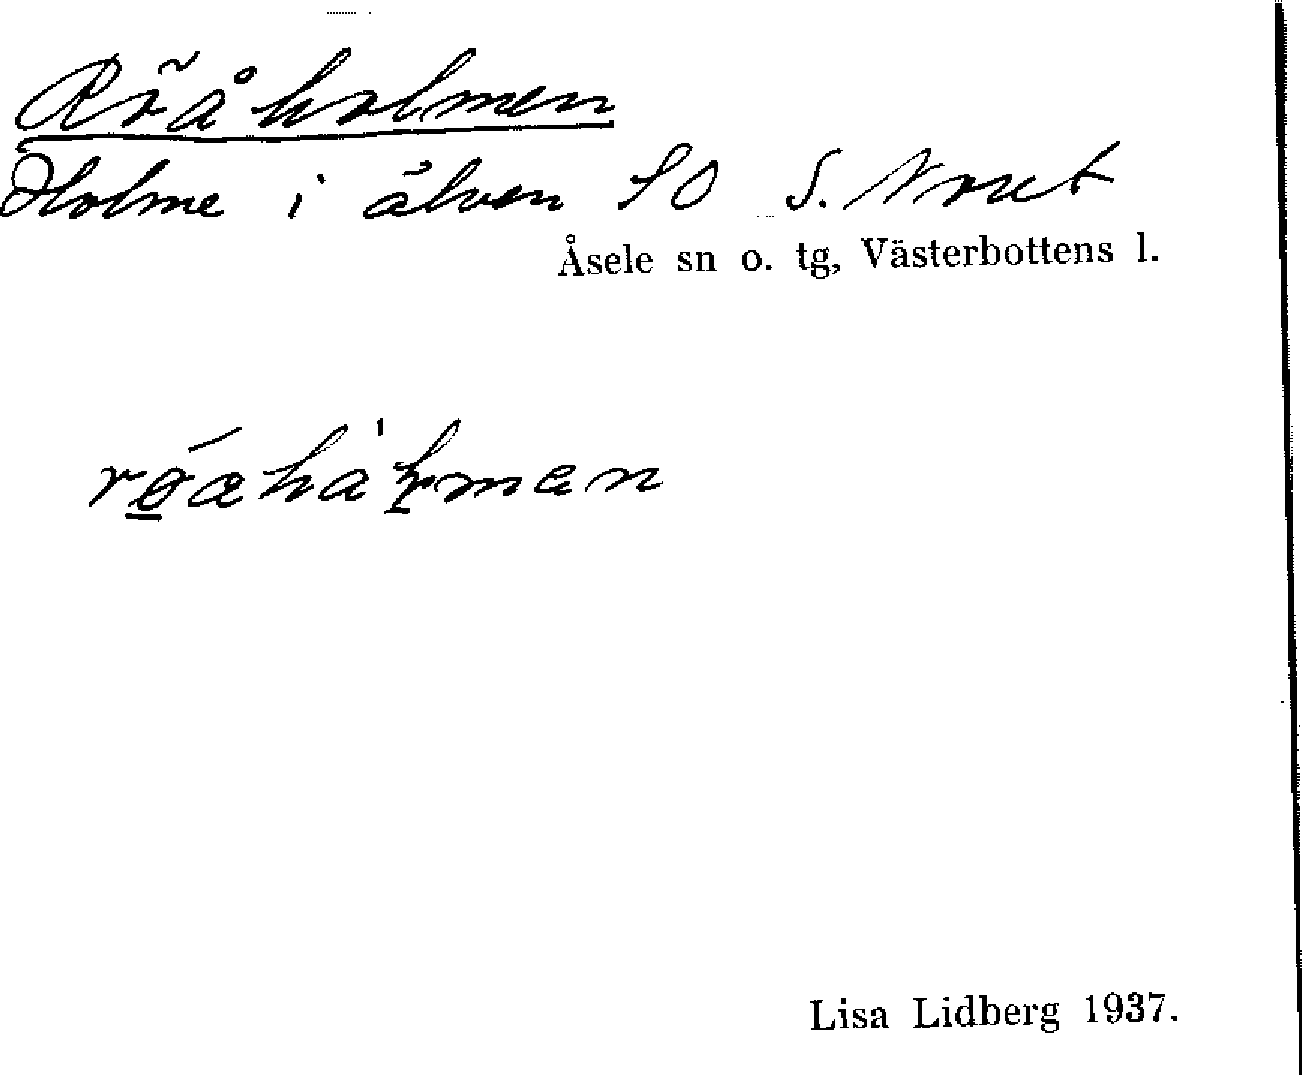 Röåholmen
Holme i älven SO S. Noret
Åsele sn o. tg, Västerbottens l.
Lisa Lidberg 1937.